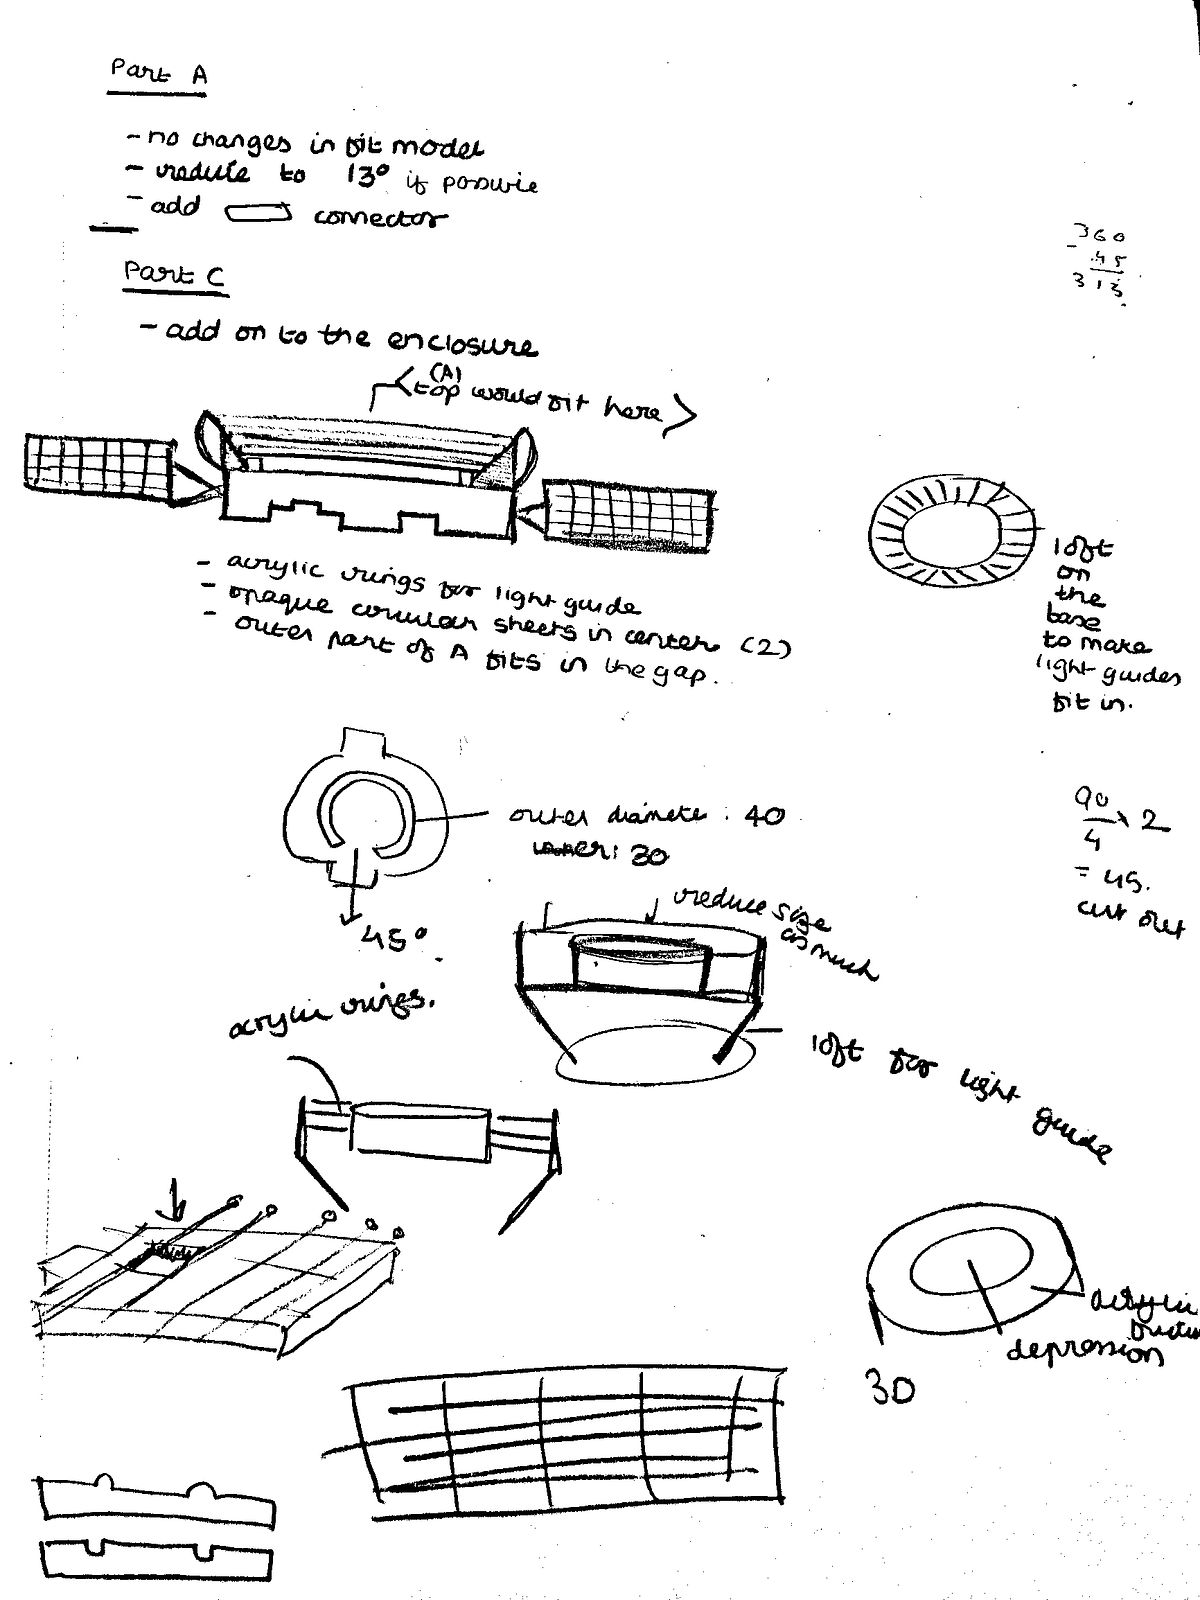 Part A
- no changes in fit model
- reduce to 13° if possible
- add connector
360
- 45
313
Part C
- add on to the enclosure
(A)
<top would fit here>
- acrylic rings for light guide
- opaque circular sheets in center (2)
- outer part of A fits in the gap.
loft
on
the
base
to make
light guides
fit in.
outer diamete : 40
inner: 30
45°
90/4 x 2
= 45.
cut out
reduce size
as much
acrylic rings.
loft for light
guide
acrylic
depression
30